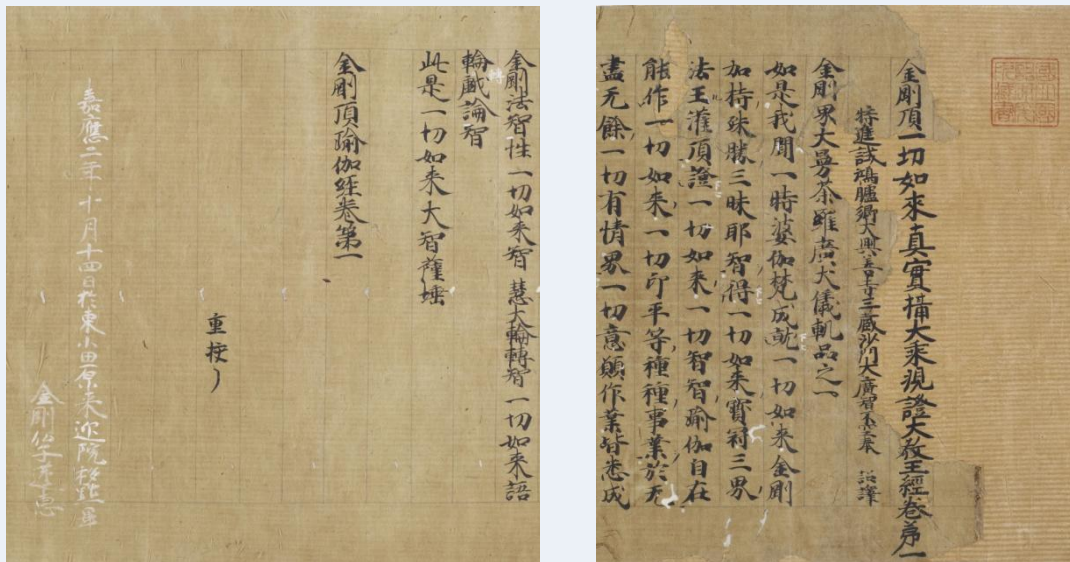 金剛頂一切如來真實攝大乘現證大教王經卷第一
特進試鴻臚卿大興善寺三藏沙門大廣智不空奉 詔譯
金剛界大曼荼羅廣大儀軌品之一
如是我聞一時婆伽梵成就一切如来金剛
加持殊勝三昧耶智得一切如来寶冠三界
法王灌頂證一切如来一切智智瑜伽自在
能作一切如来一切印平等種種事業於无
盡无餘一切有情界一切意願作業皆悉成
金剛法智性一切如来智慧大輪轉智一切如来語
輪轉戲論智
此是一切如来大智薩埵
金剛頂瑜伽經卷第一
重挍了
嘉應二年十月十四日於東小田原来迎院
金剛